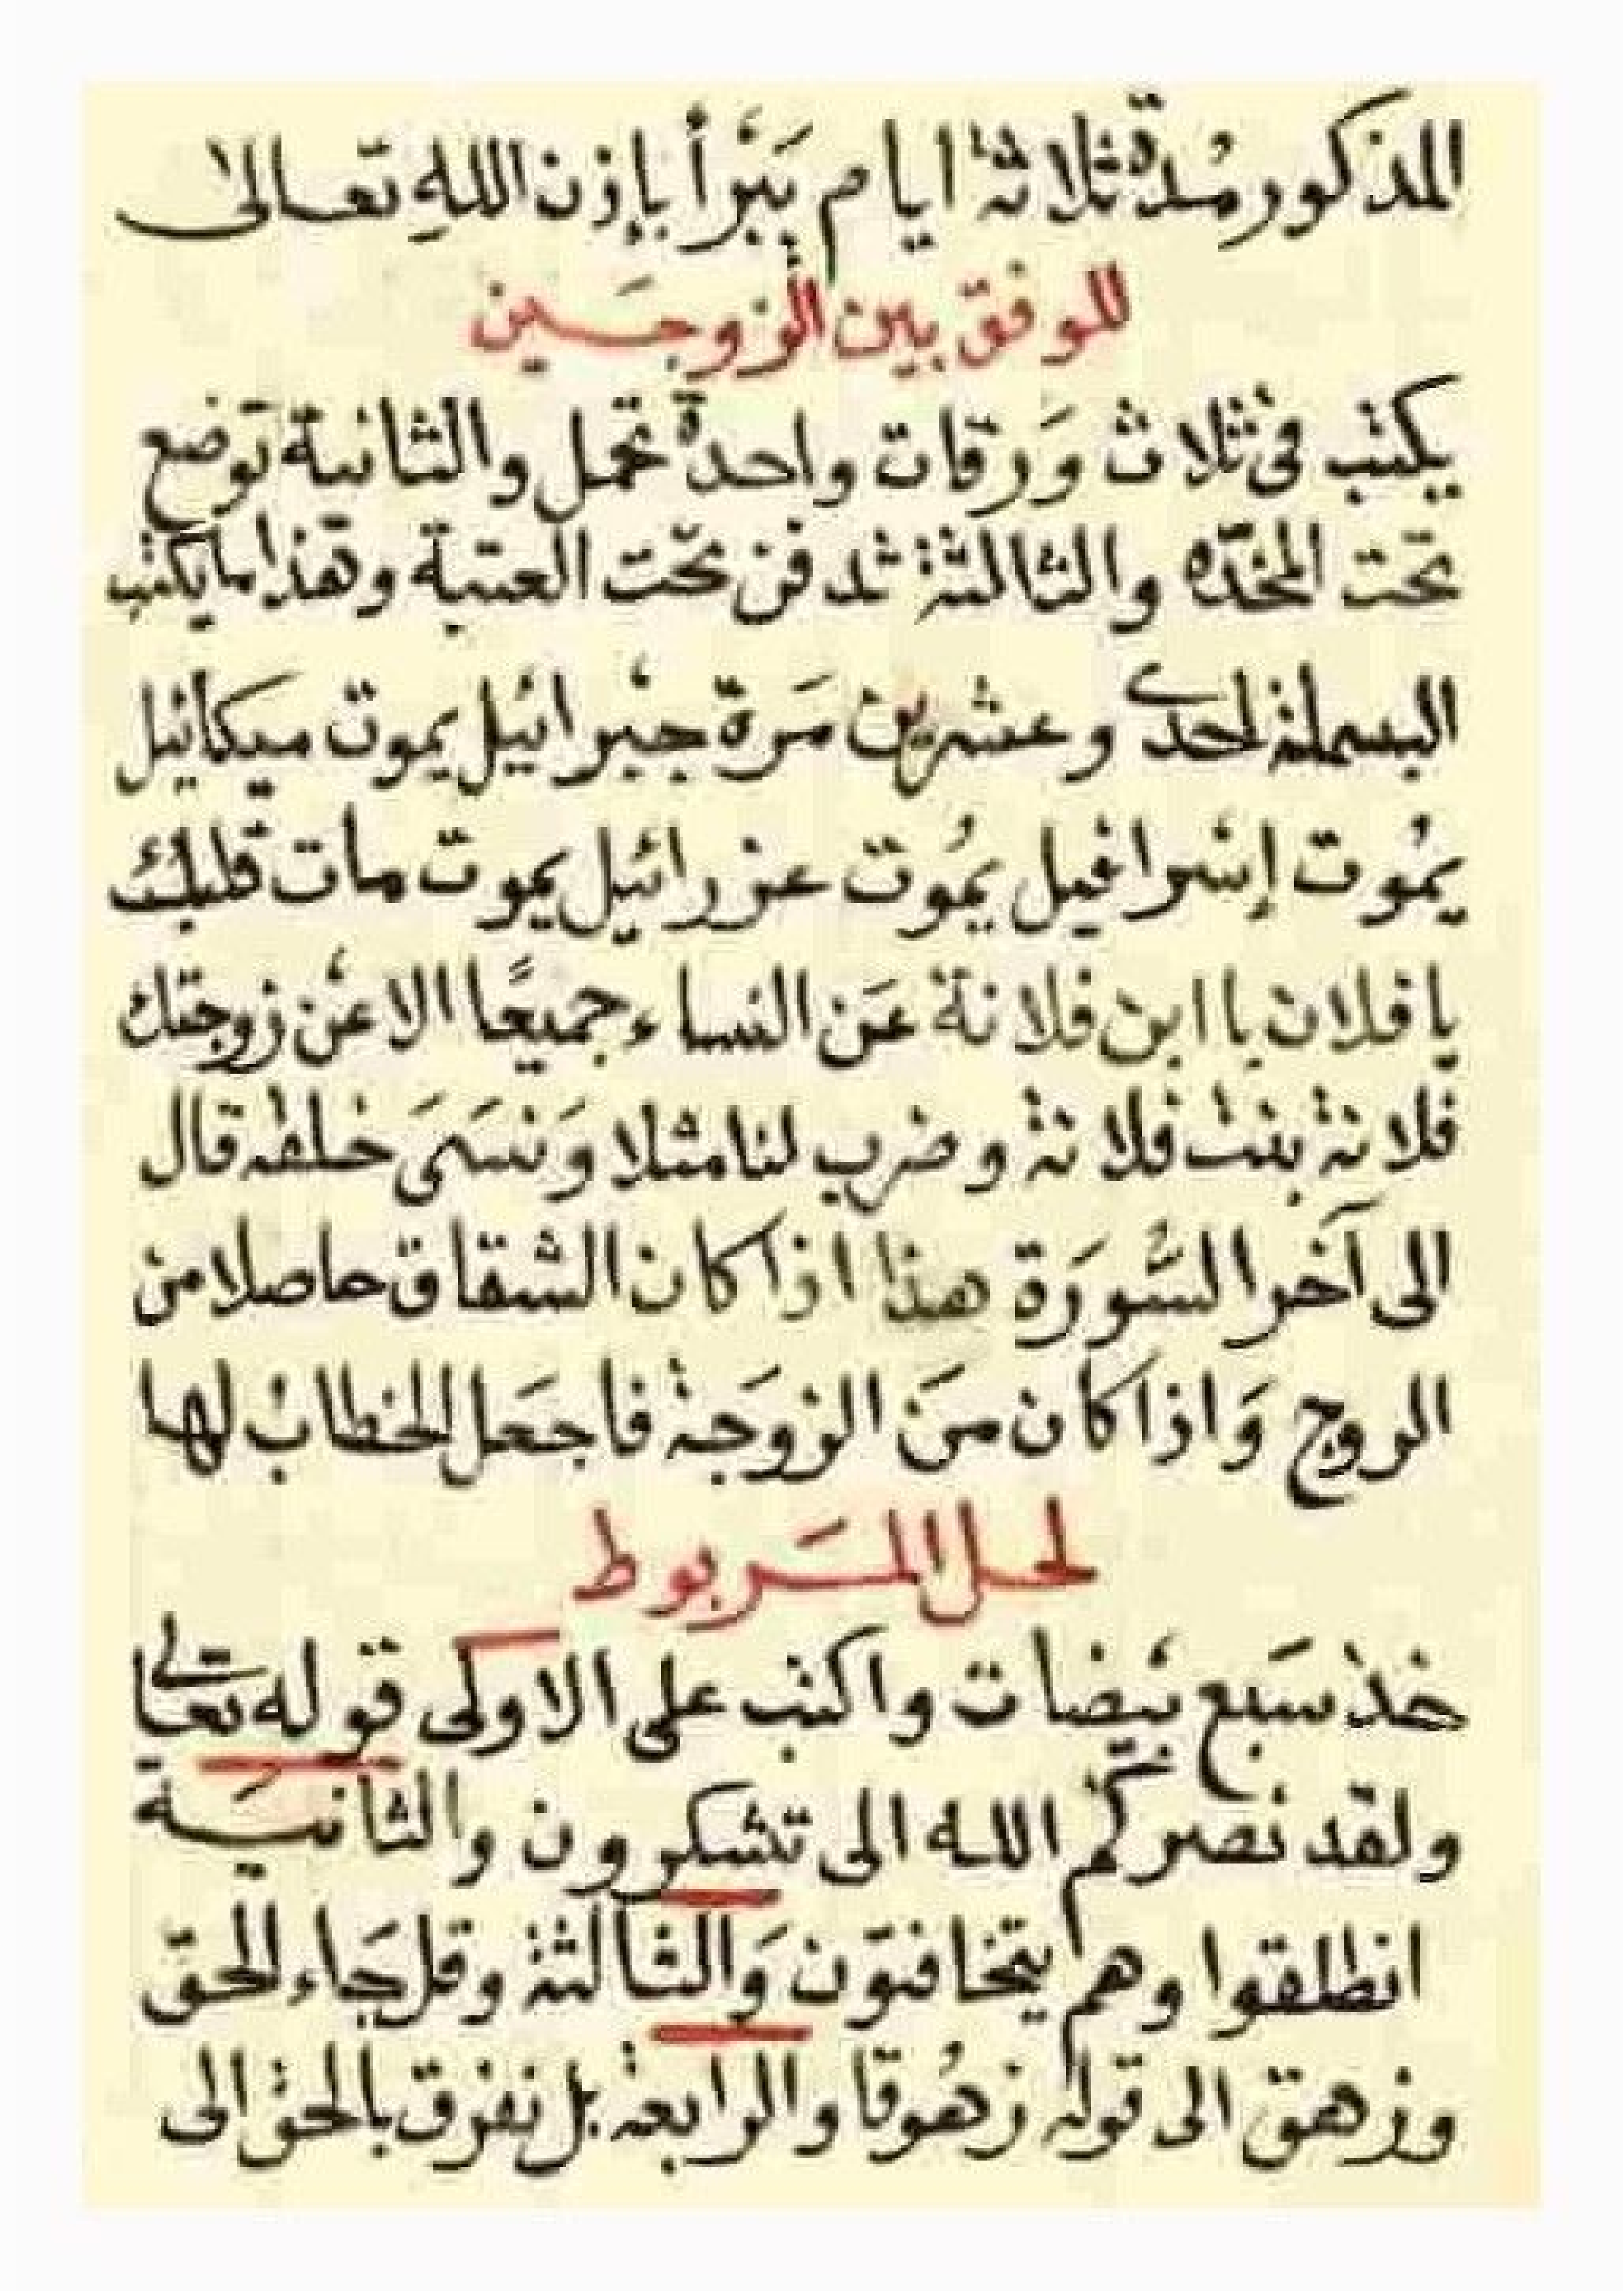 المذكور مُدة ثلاثة ايام يَبْرأ بإذن اللهِ تعالى
للوفق بين الزوجَين
يكتب فى ثلاث وَرقات واحدة تحمل والثانية توضع
تحت المخدّه والثالثة تدفن تحت العتبة وهذا ما يكتب
البسملة احدى وعشرين مَرة جبرائيل يموت ميكائيل
يمُوت إسرافيل يمُوت عزرائيل يموت مات قلبك
يا فلان يا ابن فلانة عَن النساء جميعًا الا عن زوجتك
فلانة بنت فلانة وضرب لنا مثلا وَنسَىَ خلقه قال
الى آخر السُّورَة هذا اذا كان الشقاق حاصلا من
الزوج وَاذا كان منَ الزوَجة فاجعَل الخطاب لها
لحل المَربوط
خذ سَبع بَيضات واكتب على الاولى قوله تعالى
ولقد نصركم الله الى تشكرون والثانيَة
انطلقوا وهم يتخافتون وَالثالثة وقل جَاء الحقّ
وزهق الى قوله زهُوقا والرابعة بل نفزق بالحق الى